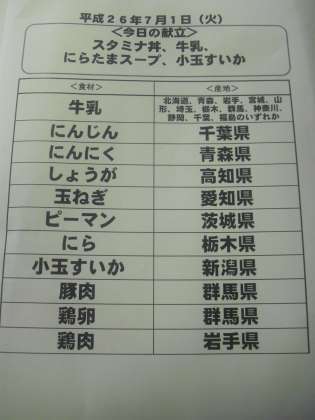 平成26年7月1日（火）
＜今日の献立＞
スタミナ丼、牛乳、
にらたまスープ、小玉すいか
＜食材＞ ＜産地＞
牛乳 北海道、青森、岩手、宮城、山
形、埼玉、栃木、群馬、神奈川、
静岡、千葉、福島のいずれか
にんじん 千葉県
にんにく 青森県
しょうが 高知県
玉ねぎ 愛知県
ピーマン 茨城県
にら 栃木県
小玉すいか 新潟県
豚肉 群馬県
鶏卵 群馬県
鶏肉 岩手県